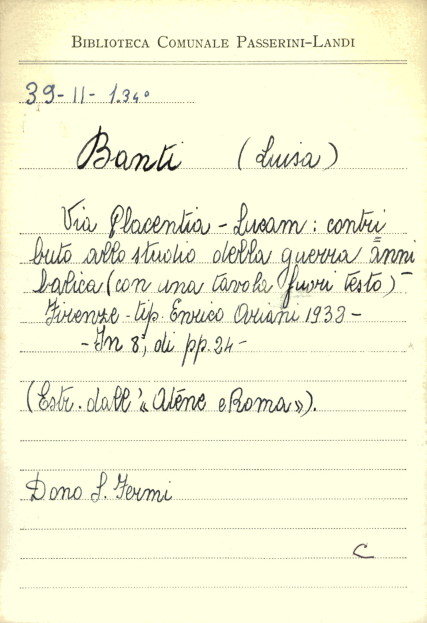 BIBLIOTECA COMUNALE PASSERINI-LANDI
39-II-1.34°
Banti (Luisa)
Via Placentia - Lucam: contri
buto allo studio della guerra anni
balica (con una tavola fuori testo) -
Firenze - tip. Enrico Ariani 1933 -
- In 8°, di pp. 24 -
(Estr. dall'« Atène e Roma »).
Dono S. Fermi
C